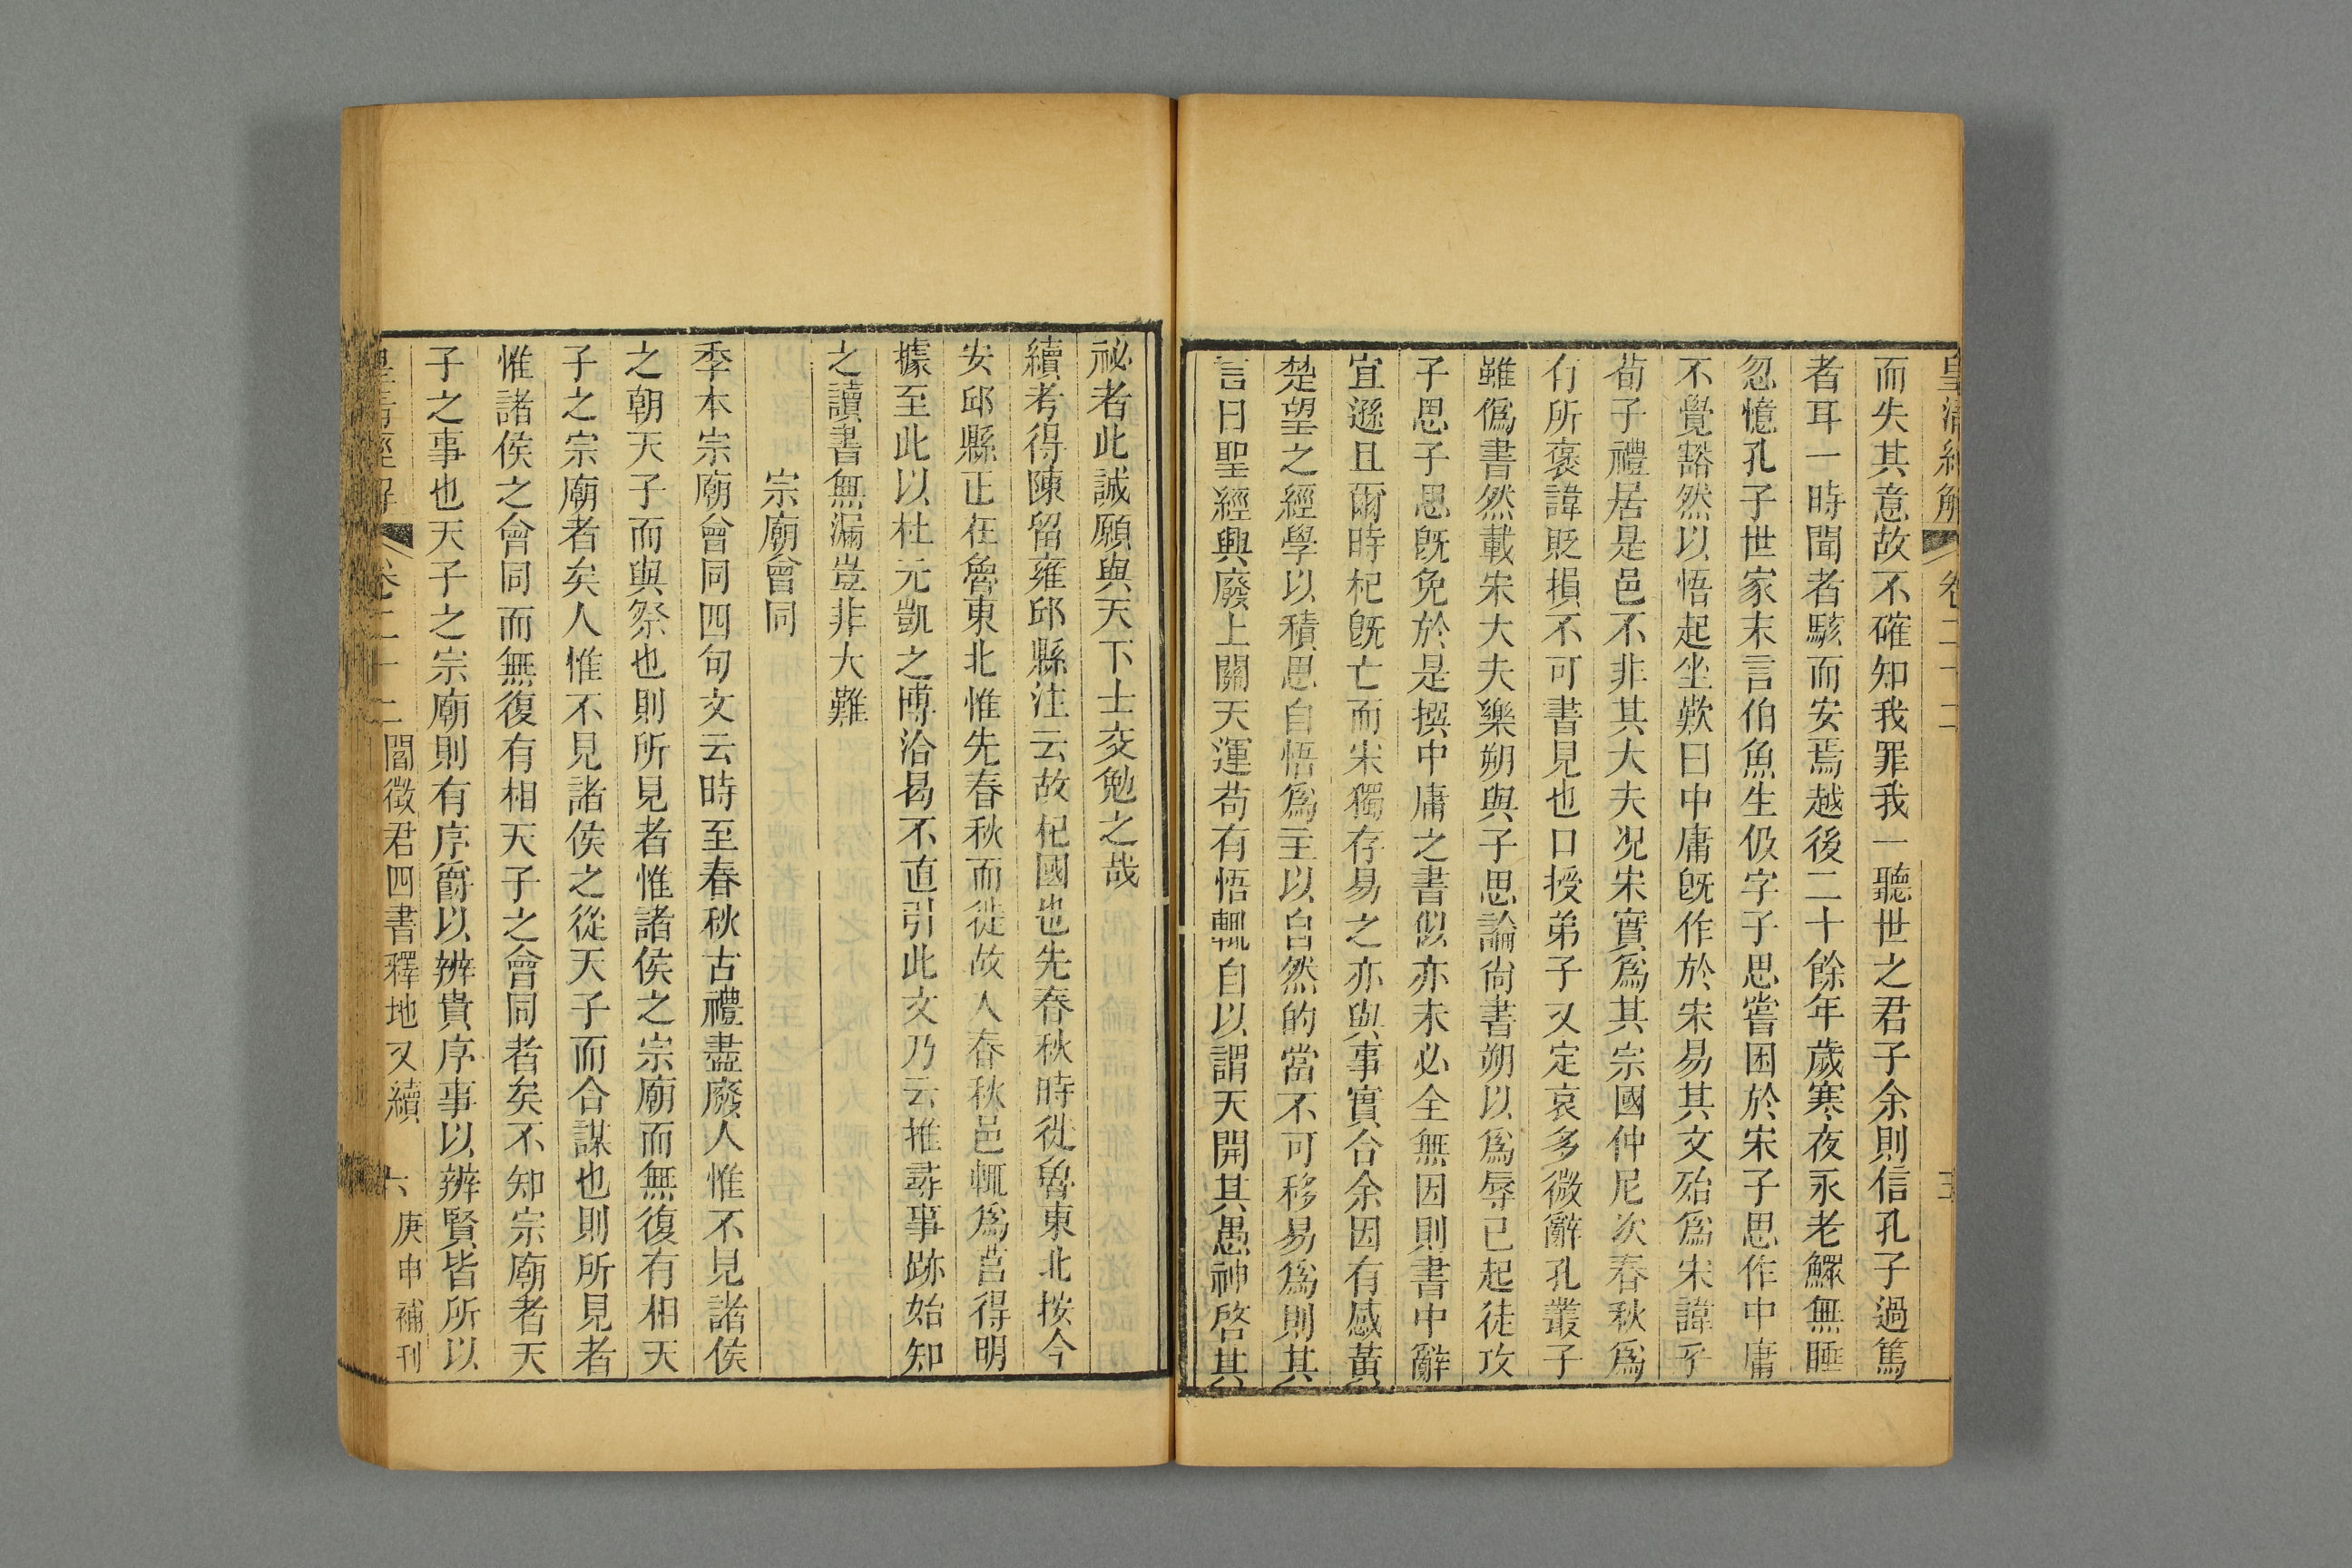 皇清經解 卷二十二
而失其意故不確知我罪我一聽世之君子余則信孔子過篤
者耳一時聞者駭而安焉越後二十餘年歲寒夜永老鰥無睡
忽憶孔子世家末言伯魚生伋字子思嘗困於宋子思作中庸
不覺豁然以悟起坐歎曰中庸旣作於宋易其文殆爲宋諱乎
荀子禮居是邑不非其大夫况宋實爲其宗國仲尼次春秋爲
有所褒諱貶損不可書見也口授弟子又定哀多微辭孔叢子
雖僞書然載宋大夫樂朔與子思論尙書朔以爲辱己起徒攻
子思子思旣免於是撰中庸之書似亦未必全無因則書中辭
宜遜且爾時杞旣亡而宋獨存易之亦與事實合余因有感黃
楚望之經學以積思自悟爲主以自然的當不可移易爲則其
言曰聖經興廢上關天運苟有悟輒自以謂天開其愚神啓其
祕者此誠願與天下士交勉之哉
續考得陳留雍邱縣注云故杞國也先春秋時徙魯東北按今
安邱縣正在魯東北惟先春秋而徙故入春秋邑輒爲莒得明
據至此以杜元凱之博洽曷不直引此文乃云推尋事跡始知
之讀書無漏豈非大難
宗廟會同
季本宗廟會同四句文云時至春秋古禮盡廢人惟不見諸侯
之朝天子而與祭也則所見者惟諸侯之宗廟而無復有相天
子之宗廟者矣人惟不見諸侯之從天子而合謀也則所見者
惟諸侯之會同而無復有相天子之會同者矣不知宗廟者天
子之事也天子之宗廟則有序爵以辨貴序事以辨賢皆所以
皇清經解 卷二十二 閻徵君四書釋地又續 六 庚申補刊